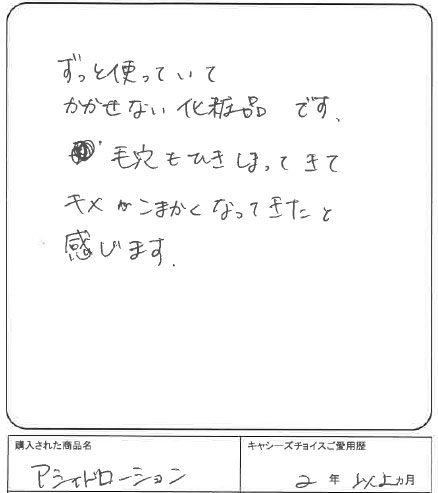 ずっと使っていて
かかせない化粧品です、
毛穴もひきしまってきて
キメがこまかくなってきたと
感じます.
購入された商品名
キャシーズチョイスご愛用歴
アシィドローション
2年以上カ月